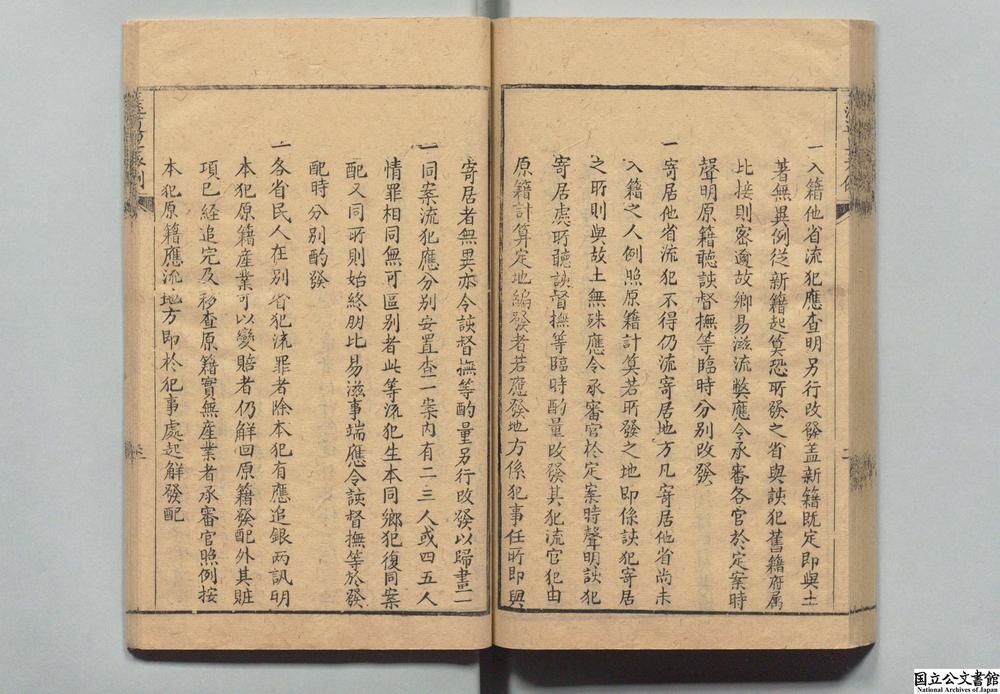 一入籍他省流犯應查明另行改發盖新籍既定即與土
著無異例從新籍起筭恐所發之省與該犯舊籍府属
比接則密邇故鄉易滋流獘應令承審各官於定案時
聲明原籍聽該督撫等臨時分别改發
一寄居他省流犯不得仍流寄居地方凡寄居他省尚未
入籍之人例照原籍計筭若所發之地即係該犯寄居
之所則與故土無殊應令承審官於定案時聲明該犯
寄居處所聽該督撫等臨時酌量改發其犯流官犯由
原籍計筭定地編發者若應發地方係犯事任所即與
寄居者無異亦令該督撫等酌量另行改發以歸畫一
一同案流犯應分别安置查一案内有二三人或四五人
情罪相同無可區别者此等流犯生本同鄉犯復同案
配又同所則始終朋比易滋事端應令該督撫等於發
配時分别酌發
一各省民人在别省犯流罪者除本犯有應追銀两訊明
本犯原籍產業可以變賠者仍解回原籍發配外其賍
項已經追完及移查原籍實無產業者承審官照例按
本犯原籍應流地方即於犯事處起解發配
国立公文書館
National Archives of Japan